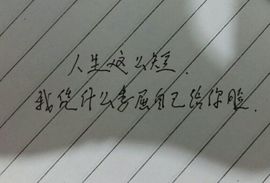 人生这么短.
我凭什么委屈自己给你脸.